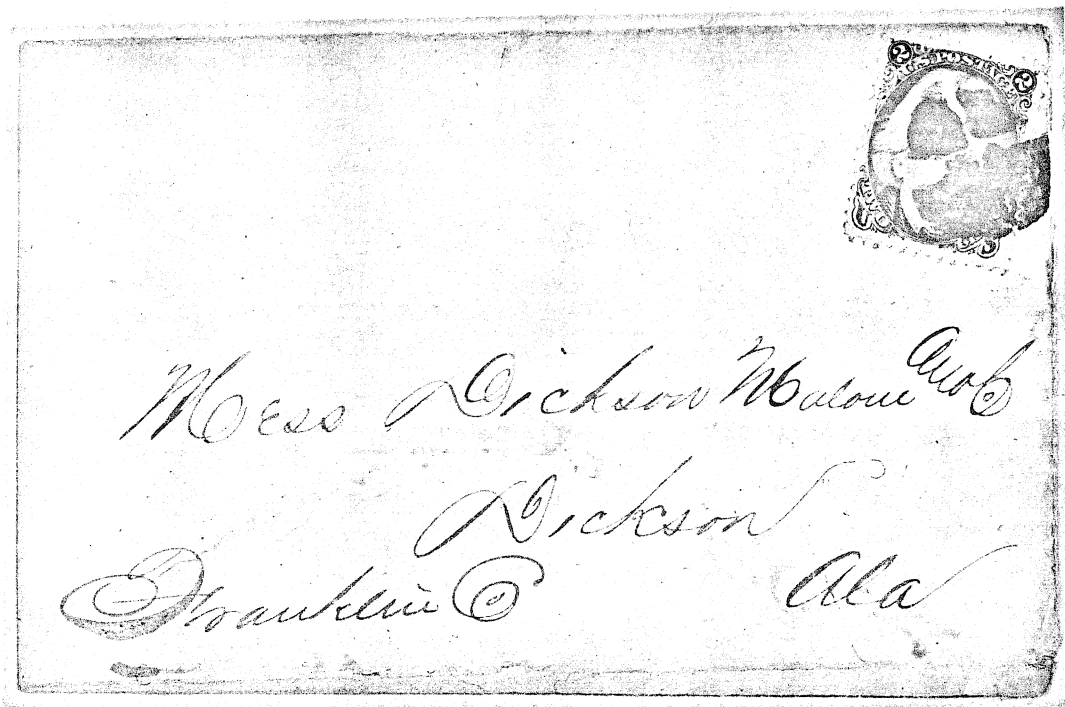 2 U.S. POSTAGE 2
Mess Dickson Malone and Co
Dickson
Franklin Co Ala